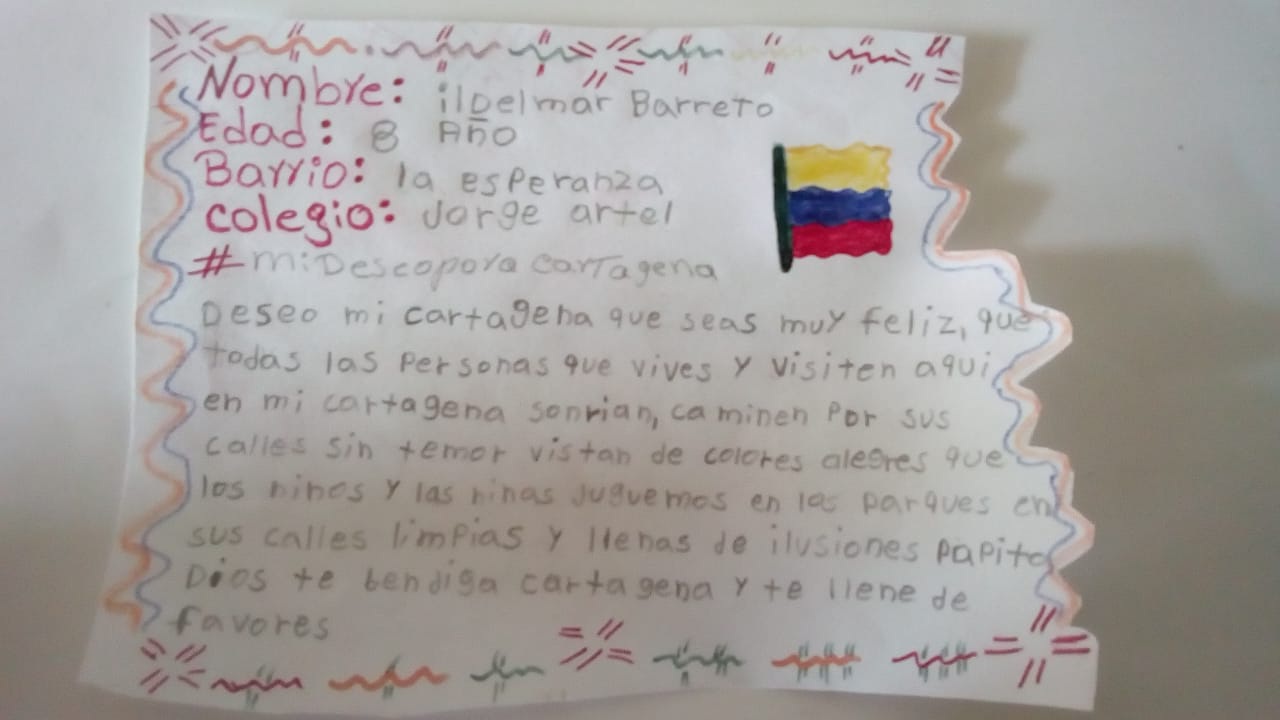 Nombre: ilDelmar Barreto
Edad: 8 Año
Barrio: la esperanza
colegio: Jorge artel
#miDescopora cartagena
Deseo mi cartagena que seas muy feliz, que
todas las personas que vives y visiten aqui
en mi cartagena sonrian, caminen por sus
calles sin temor vistan de colores alegres que
los ninos y las ninas juguemos en los parques en
sus calles limpias y llenas de ilusiones papito
Dios te bendiga cartagena y te llene de
favores